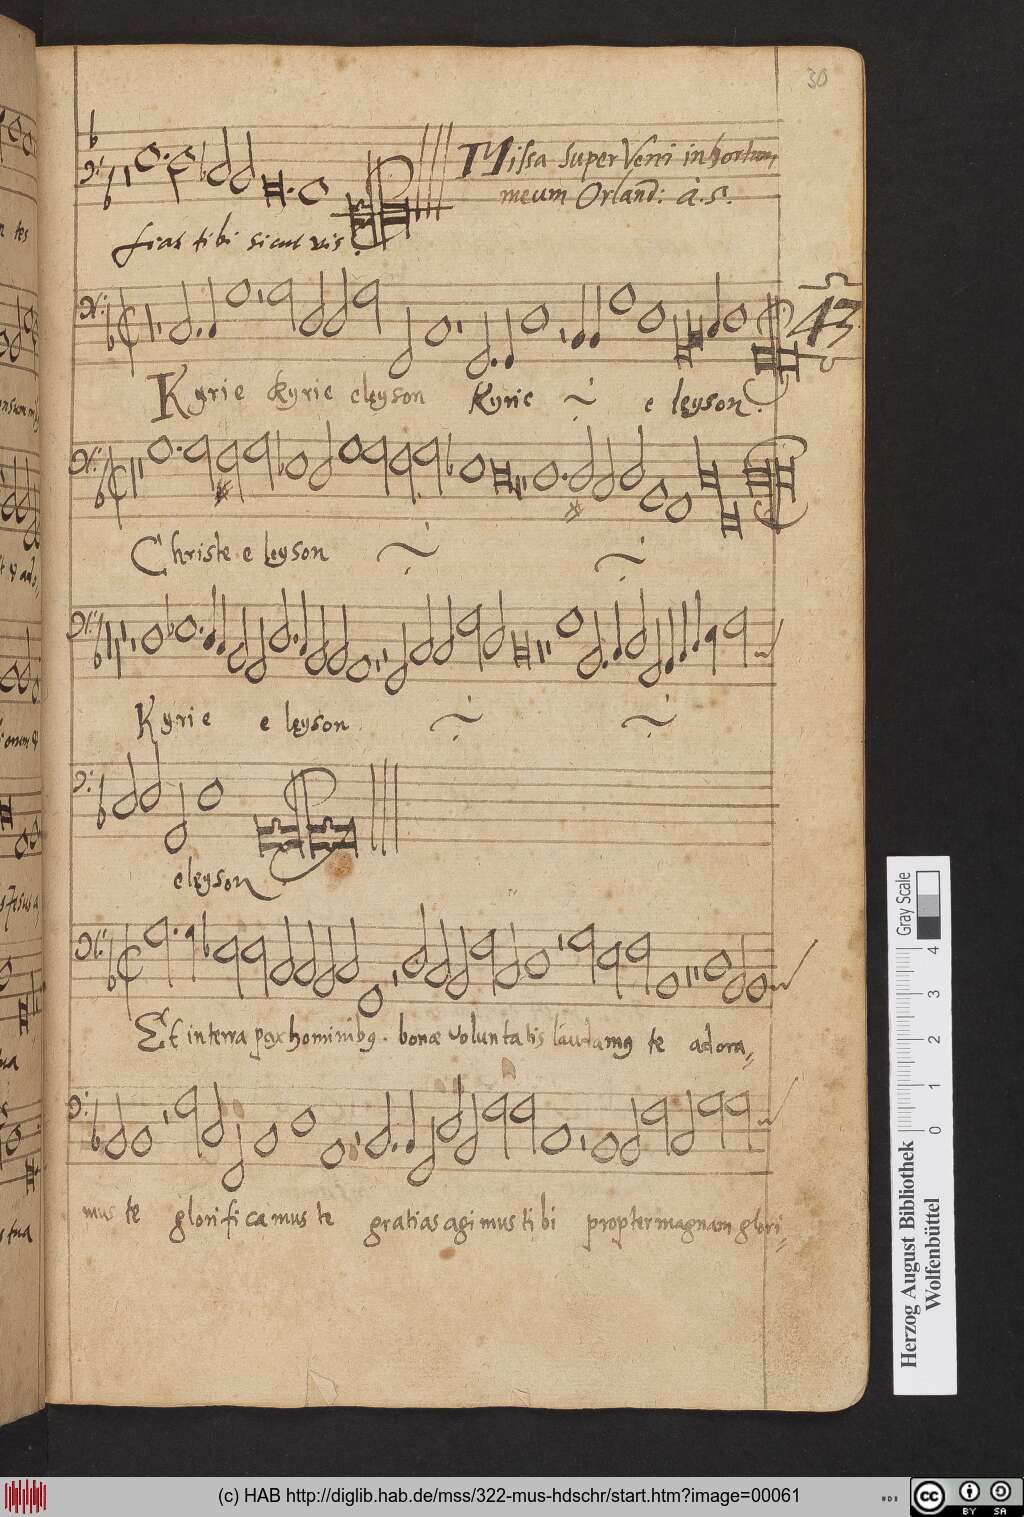 30
Missa super Veni in hortum
meum Orland: à. 5.
fiat tibi sicut vis.
43
Kyrie Kyrie eleyson Kyrie e leyson.
Christe e leyson
Kyrie e leyson
eleyson
Et in terra pax hominibꝰ. bonæ voluntatis laudamꝰ te adora⸗
mus te glorificamus te gratias agimus tibi propter magnam glori⸗
Gray Scale
0 1 2 3 4
Herzog August Bibliothek
Wolfenbüttel
(c) HAB http://diglib.hab.de/mss/322-mus-hdschr/start.htm?image=00061
cc BY SA